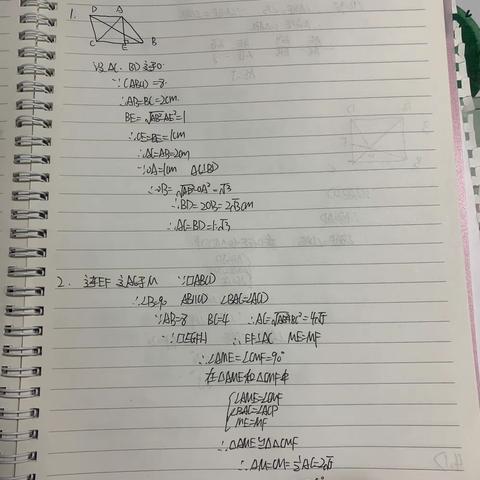 1.
D A
C E B
设AC、BD交于O
∵CABCD=8
∴AB=BC=2cm
BE=√AB²-AE²=1
∴CE=BE=1cm
∴AC=AB=2cm
∵OA=1cm AC⊥BD
∴OB=√AB²-OA²=√3
∴BD=2OB=2√3cm
∴AC=BD=1:√3
2. 连EF 交AC于M ∵□ABCD
∴∠B=90 AB∥CD ∠BAC=∠ACD
∵AB=8 BC=4 ∴AC=√AB²+BC²=4√5
∴EF⊥AC ME=MF
∴∠AME=∠CMF=90°
在△AME和△CMF中
∠AME=∠CMF
∠BAC=∠ACD
ME=MF
∴△AME≌△CMF
∴AM=CM=½AC=2√5